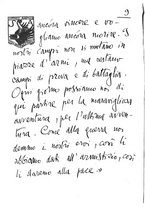 9
ancora vincere e vo-
gliamo ancora morire. I
nostri campi non si mutano in
piazze d'armi, ma restano
campi di prova e di battaglia.
Ogni giorno possiamo noi di
qui partire per la meravigliosa
avventura, per l'ultima avven-
tura. Come alla guerra noi
demmo i nostri eroi, così li
abbiamo dati all'armistizio, così
li daremo alla pace »